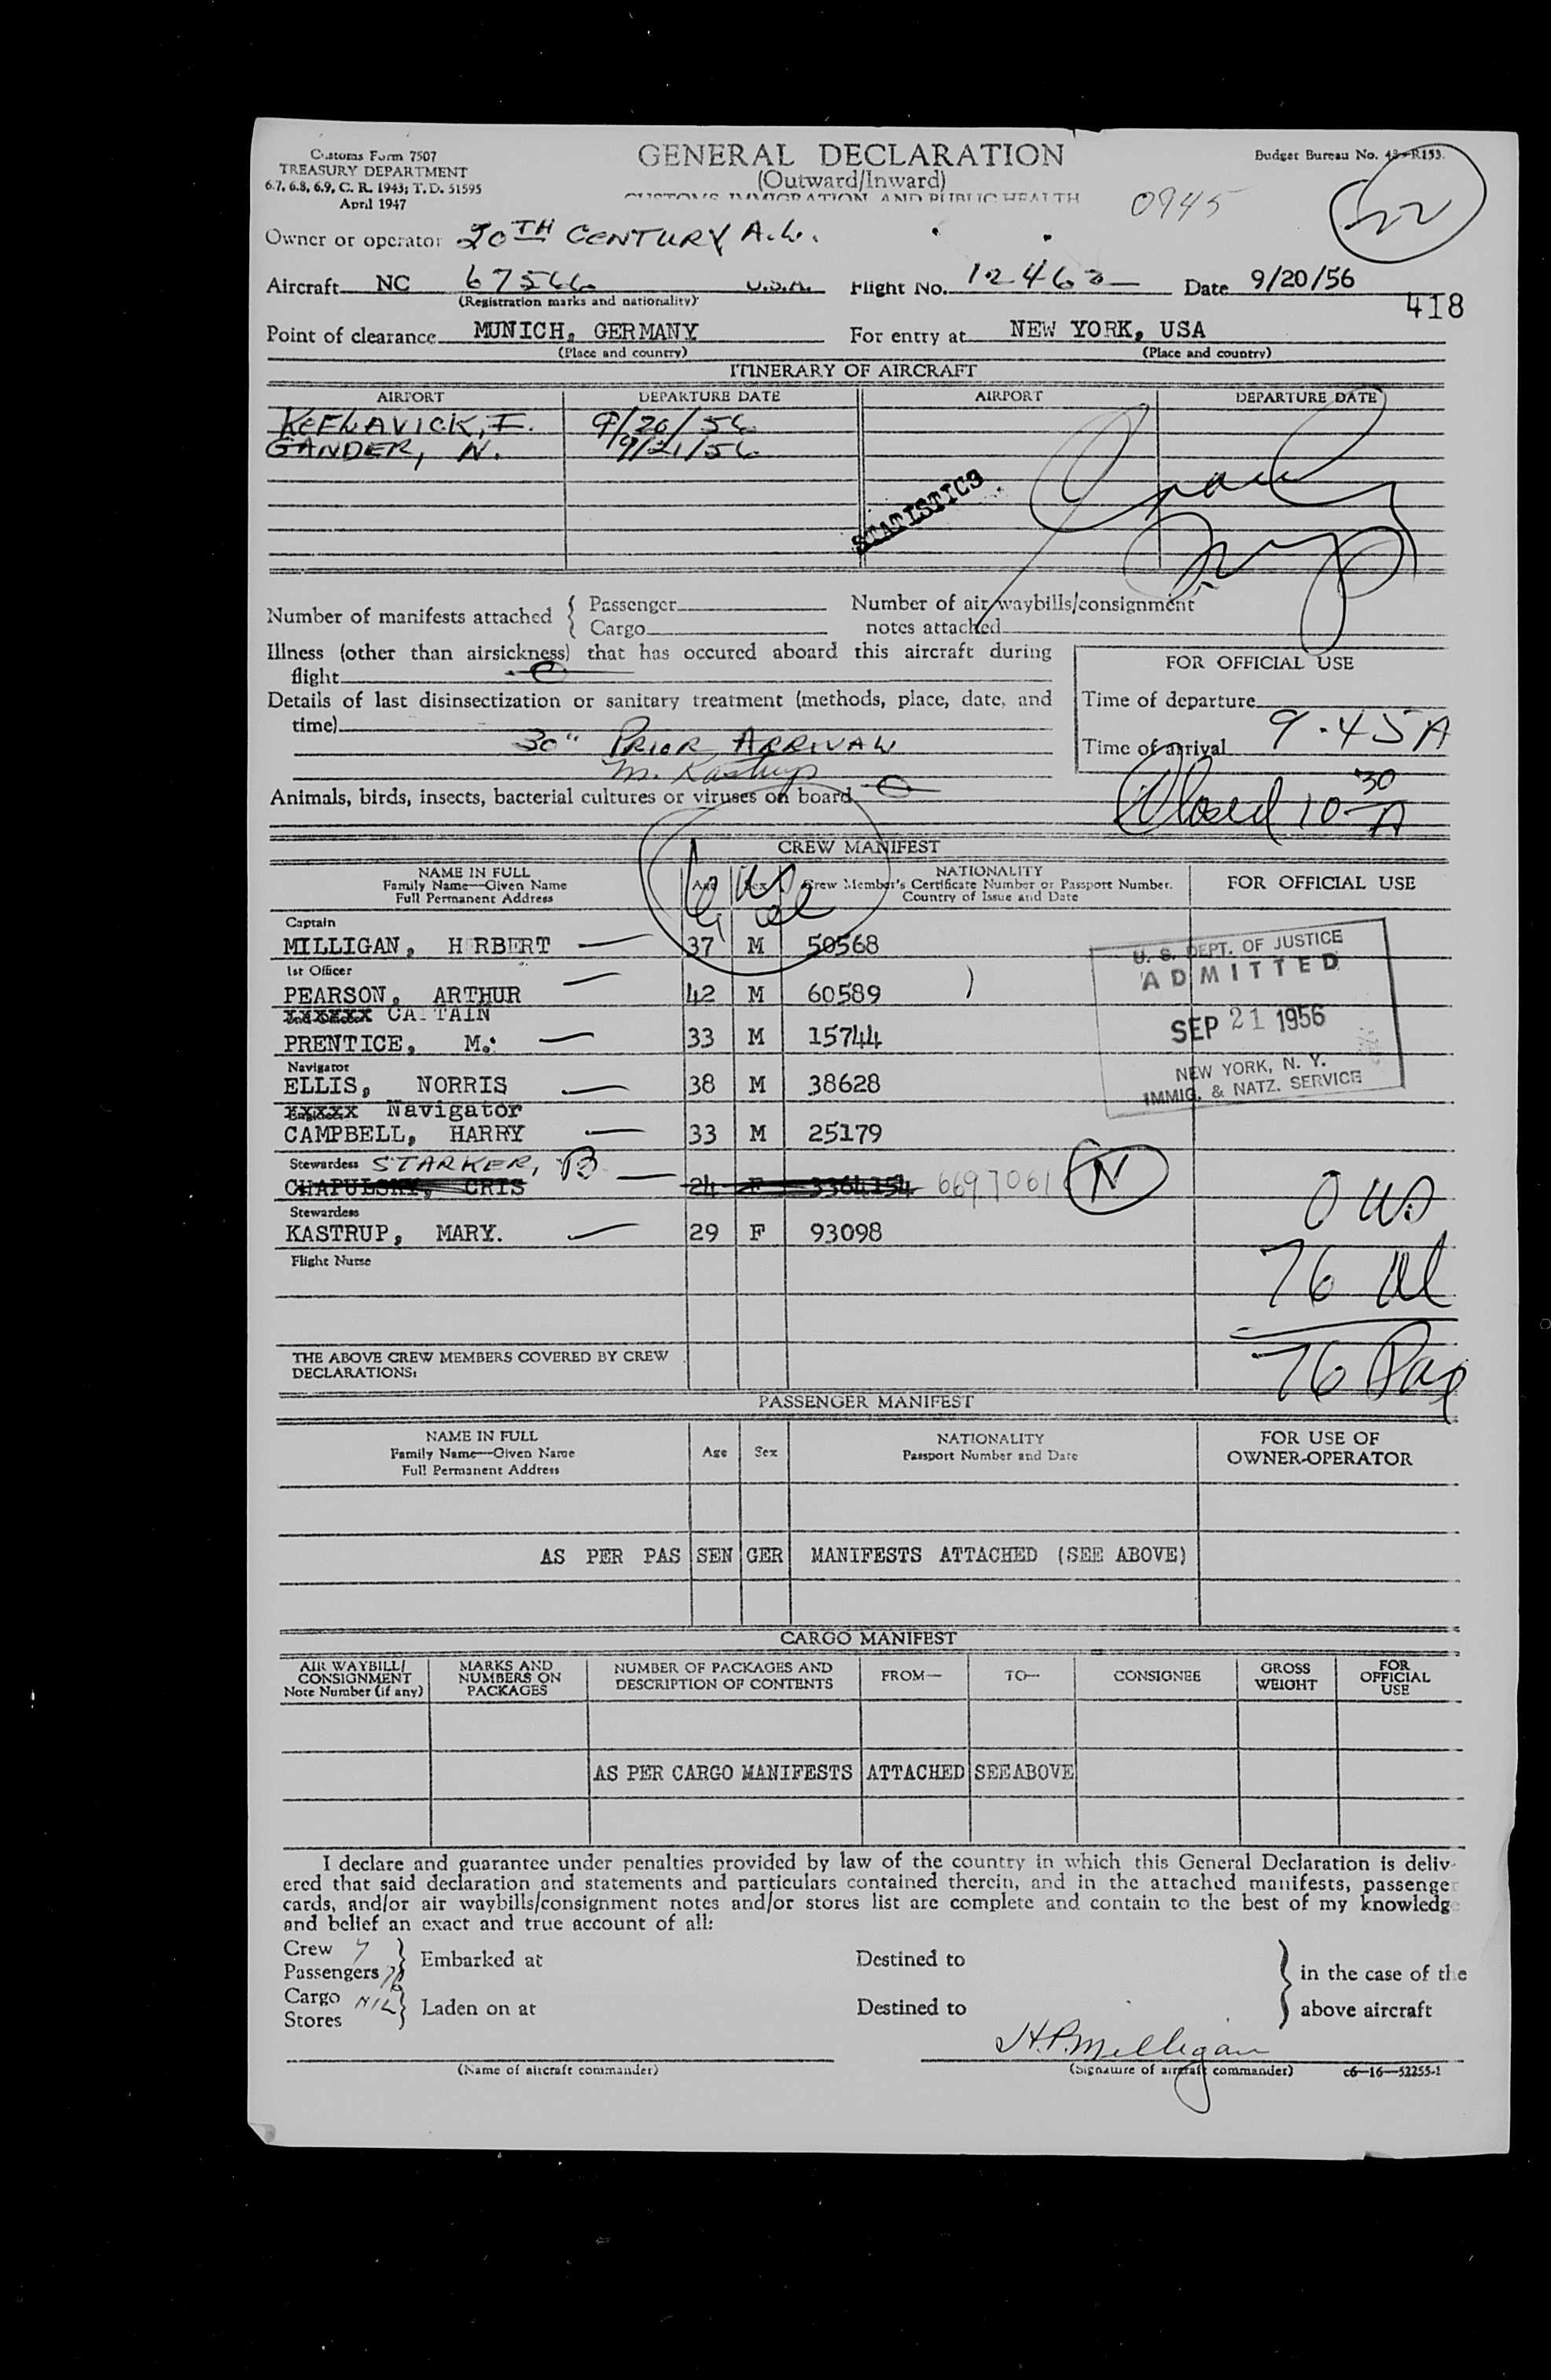 Customs Form 7507
TREASURY DEPARTMENT
6.7, 6.8, 6.9, C. R. 1943; T. D. 51595
April 1947
GENERAL DECLARATION
(Outward/Inward)
CUSTOMS IMMIGRATION AND PUBLIC HEALTH
Budget Bureau No. 48-R153.
0945
22
Owner or operator 20TH CENTURY A.L.
Aircraft NC 67566 U.S.A. Flight No. Date 9/20/56
(Registration marks and nationality)
418
Point of clearance MUNICH, GERMANY For entry at NEW YORK, USA
(Place and country) (Place and country)
ITINERARY OF AIRCRAFT
AIRPORT DEPARTURE DATE AIRPORT DEPARTURE DATE
KEFLAVICK, I. 9/20/56
GANDER, N. 9/21/56
STATISTICS
Number of manifests attached { Passenger Number of air waybills/consignment
Cargo notes attached
Illness (other than airsickness) that has occured aboard this aircraft during
flight
FOR OFFICIAL USE
Details of last disinsectization or sanitary treatment (methods, place, date, and
time)
Time of departure
30" PRIOR ARRIVAL
Time of arrival 9.45A
M. Kastrup
Animals, birds, insects, bacterial cultures or viruses on board
Closed 10 30 A
CREW MANIFEST
NAME IN FULL
Family Name—Given Name
Full Permanent Address
Age Sex
NATIONALITY
Crew Member's Certificate Number or Passport Number.
Country of Issue and Date
FOR OFFICIAL USE
6 US
1 al
Captain
MILLIGAN, H RBERT 37 M 50568
1st Officer
PEARSON, ARTHUR 42 M 60589
xxxxxx CA TAIN
PRENTICE, M. 33 M 15744
Navigator
ELLIS, NORRIS 38 M 38628
xxxxx Navigator
CAMPBELL, HARRY 33 M 25179
U. S. DEPT. OF JUSTICE
ADMITTED
SEP 21 1956
NEW YORK, N. Y.
IMMIG. & NATZ. SERVICE
Stewardess STARKER, B
CHAPULSKY, CRIS 24 F 3364154 6697061 N
Stewardess
KASTRUP, MARY. 29 F 93098
Flight Nurse
0 US
76 al
76 Pax
THE ABOVE CREW MEMBERS COVERED BY CREW
DECLARATIONS:
PASSENGER MANIFEST
NAME IN FULL
Family Name—Given Name
Full Permanent Address
Age Sex
NATIONALITY
Passport Number and Date
FOR USE OF
OWNER-OPERATOR
AS PER PAS SEN GER MANIFESTS ATTACHED (SEE ABOVE)
CARGO MANIFEST
AIR WAYBILL/
CONSIGNMENT
Note Number (if any)
MARKS AND
NUMBERS ON
PACKAGES
NUMBER OF PACKAGES AND
DESCRIPTION OF CONTENTS
FROM—
TO—
CONSIGNEE
GROSS
WEIGHT
FOR
OFFICIAL
USE
AS PER CARGO MANIFESTS ATTACHED SEE ABOVE
I declare and guarantee under penalties provided by law of the country in which this General Declaration is deliv-
ered that said declaration and statements and particulars contained therein, and in the attached manifests, passenger
cards, and/or air waybills/consignment notes and/or stores list are complete and contain to the best of my knowledg
and belief an exact and true account of all:
Crew 7
Passengers 76
Embarked at Destined to
in the case of the
Cargo NIL
Stores
Laden on at Destined to
above aircraft
H.P. Milligan
(Name of aircraft commander) (Signature of aircraft commander) c6—16—52255-1